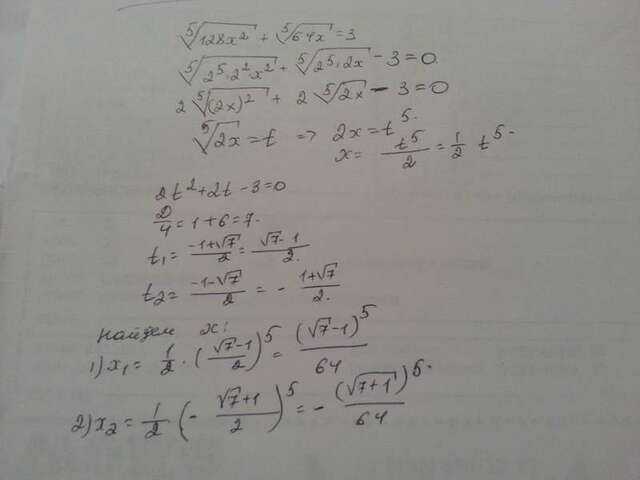 ⁵√128x² + ⁵√64x = 3
⁵√2⁵·2²x² + ⁵√2⁵·2x - 3 = 0.
2 ⁵√(2x)² + 2 ⁵√2x - 3 = 0
⁵√2x = t => 2x = t⁵.
x = t⁵/2 = 1/2 t⁵.
2t² + 2t - 3 = 0
D/4 = 1 + 6 = 7.
t₁ = (-1+√7)/2 = (√7-1)/2.
t₂ = (-1-√7)/2 = - (1+√7)/2.
Найдем x:
1) x₁ = 1/2 · ((√7-1)/2)⁵ = (√7-1)⁵/64
2) x₂ = 1/2 (- (√7+1)/2)⁵ = - (√7+1)⁵/64.